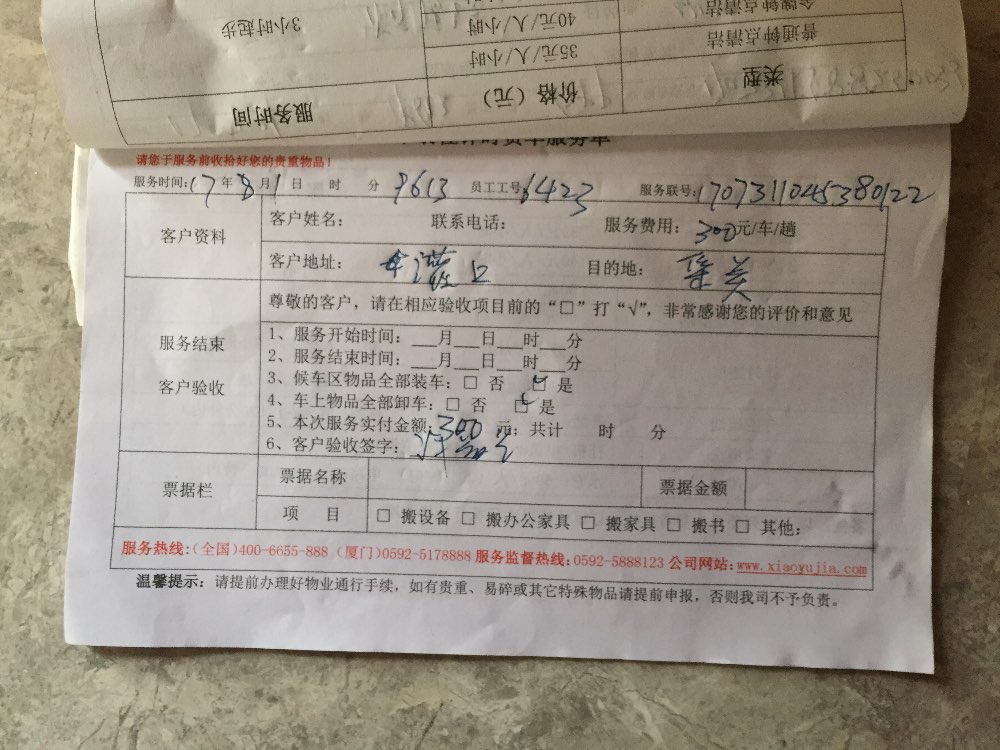 3小时起步 40元/人/小时 金牌钟点清洁
35元/人/小时 普通钟点清洁
服务时间 价格（元） 类型
请您于服务前收拾好您的贵重物品！
服务时间：17年8月1日 时 分 9613 员工工号：6423 服务联号：170731104538022
客户资料 客户姓名： 联系电话： 服务费用：300元/车/趟
客户地址： 目的地：集美
尊敬的客户，请在相应验收项目前的“□”打“√”，非常感谢您的评价和意见
服务结束
客户验收
1、服务开始时间：___月___日___时___分
2、服务结束时间：___月___日___时___分
3、候车区物品全部装车：□ 否 ☑ 是
4、车上物品全部卸车：□ 否 ☑ 是
5、本次服务实付金额：300 元；共计 时 分
6、客户验收签字：
票据栏 票据名称 票据金额
项 目 □ 搬设备 □ 搬办公家具 □ 搬家具 □ 搬书 □ 其他：
服务热线：（全国）400-6655-888（厦门）0592-5178888 服务监督热线：0592-5888123 公司网站：www.xiaoyujia.com
温馨提示：请提前办理好物业通行手续，如有贵重、易碎或其它特殊物品请提前申报，否则我司不予负责。